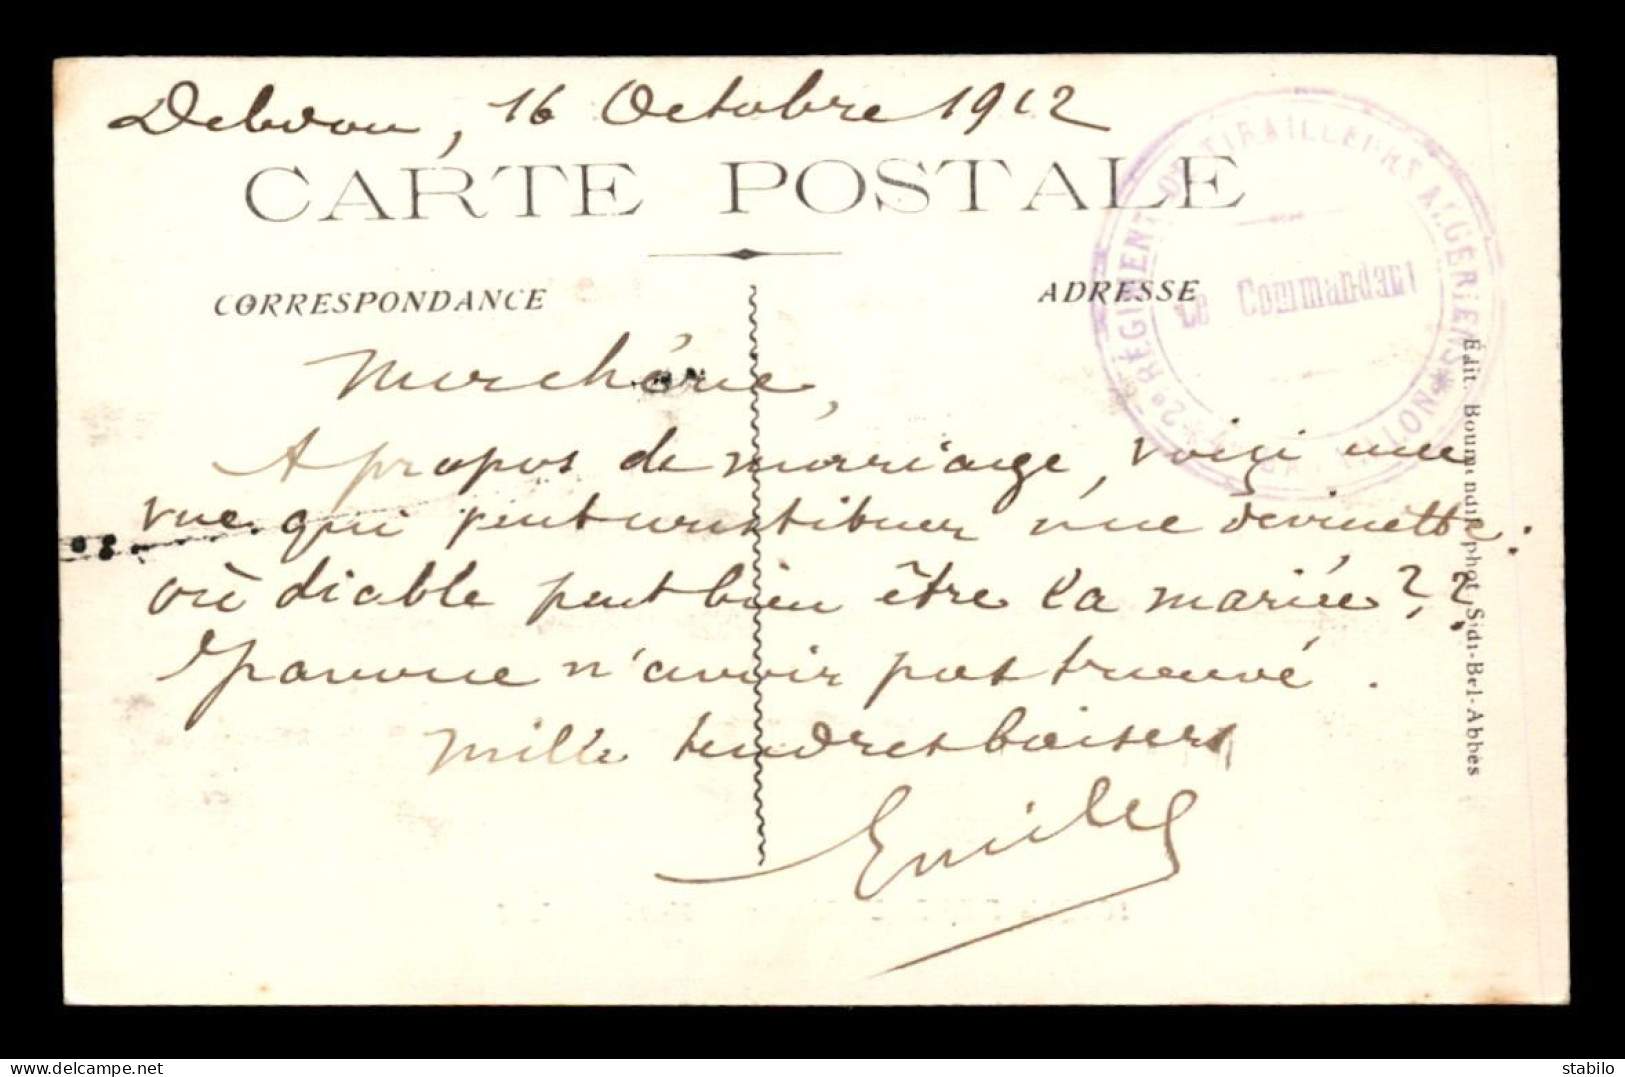 Debdou, 16 Octobre 1912
CARTE POSTALE
CORRESPONDANCE
ADRESSE
2e RÉGIMENT DE TIRAILLEURS ALGÉRIENS
BATAILLON
Le Commandant
Ma chérie,
A propos de mariage, voici une
vue qui peut constituer une devinette :
où diable peut bien être la mariée ? ?
J'avoue n'avoir pas trouvé.
Mille tendres baisers
Emile
Édit. Boumendil, phot. Sidi-Bel-Abbès
stabilo | delcampe.net